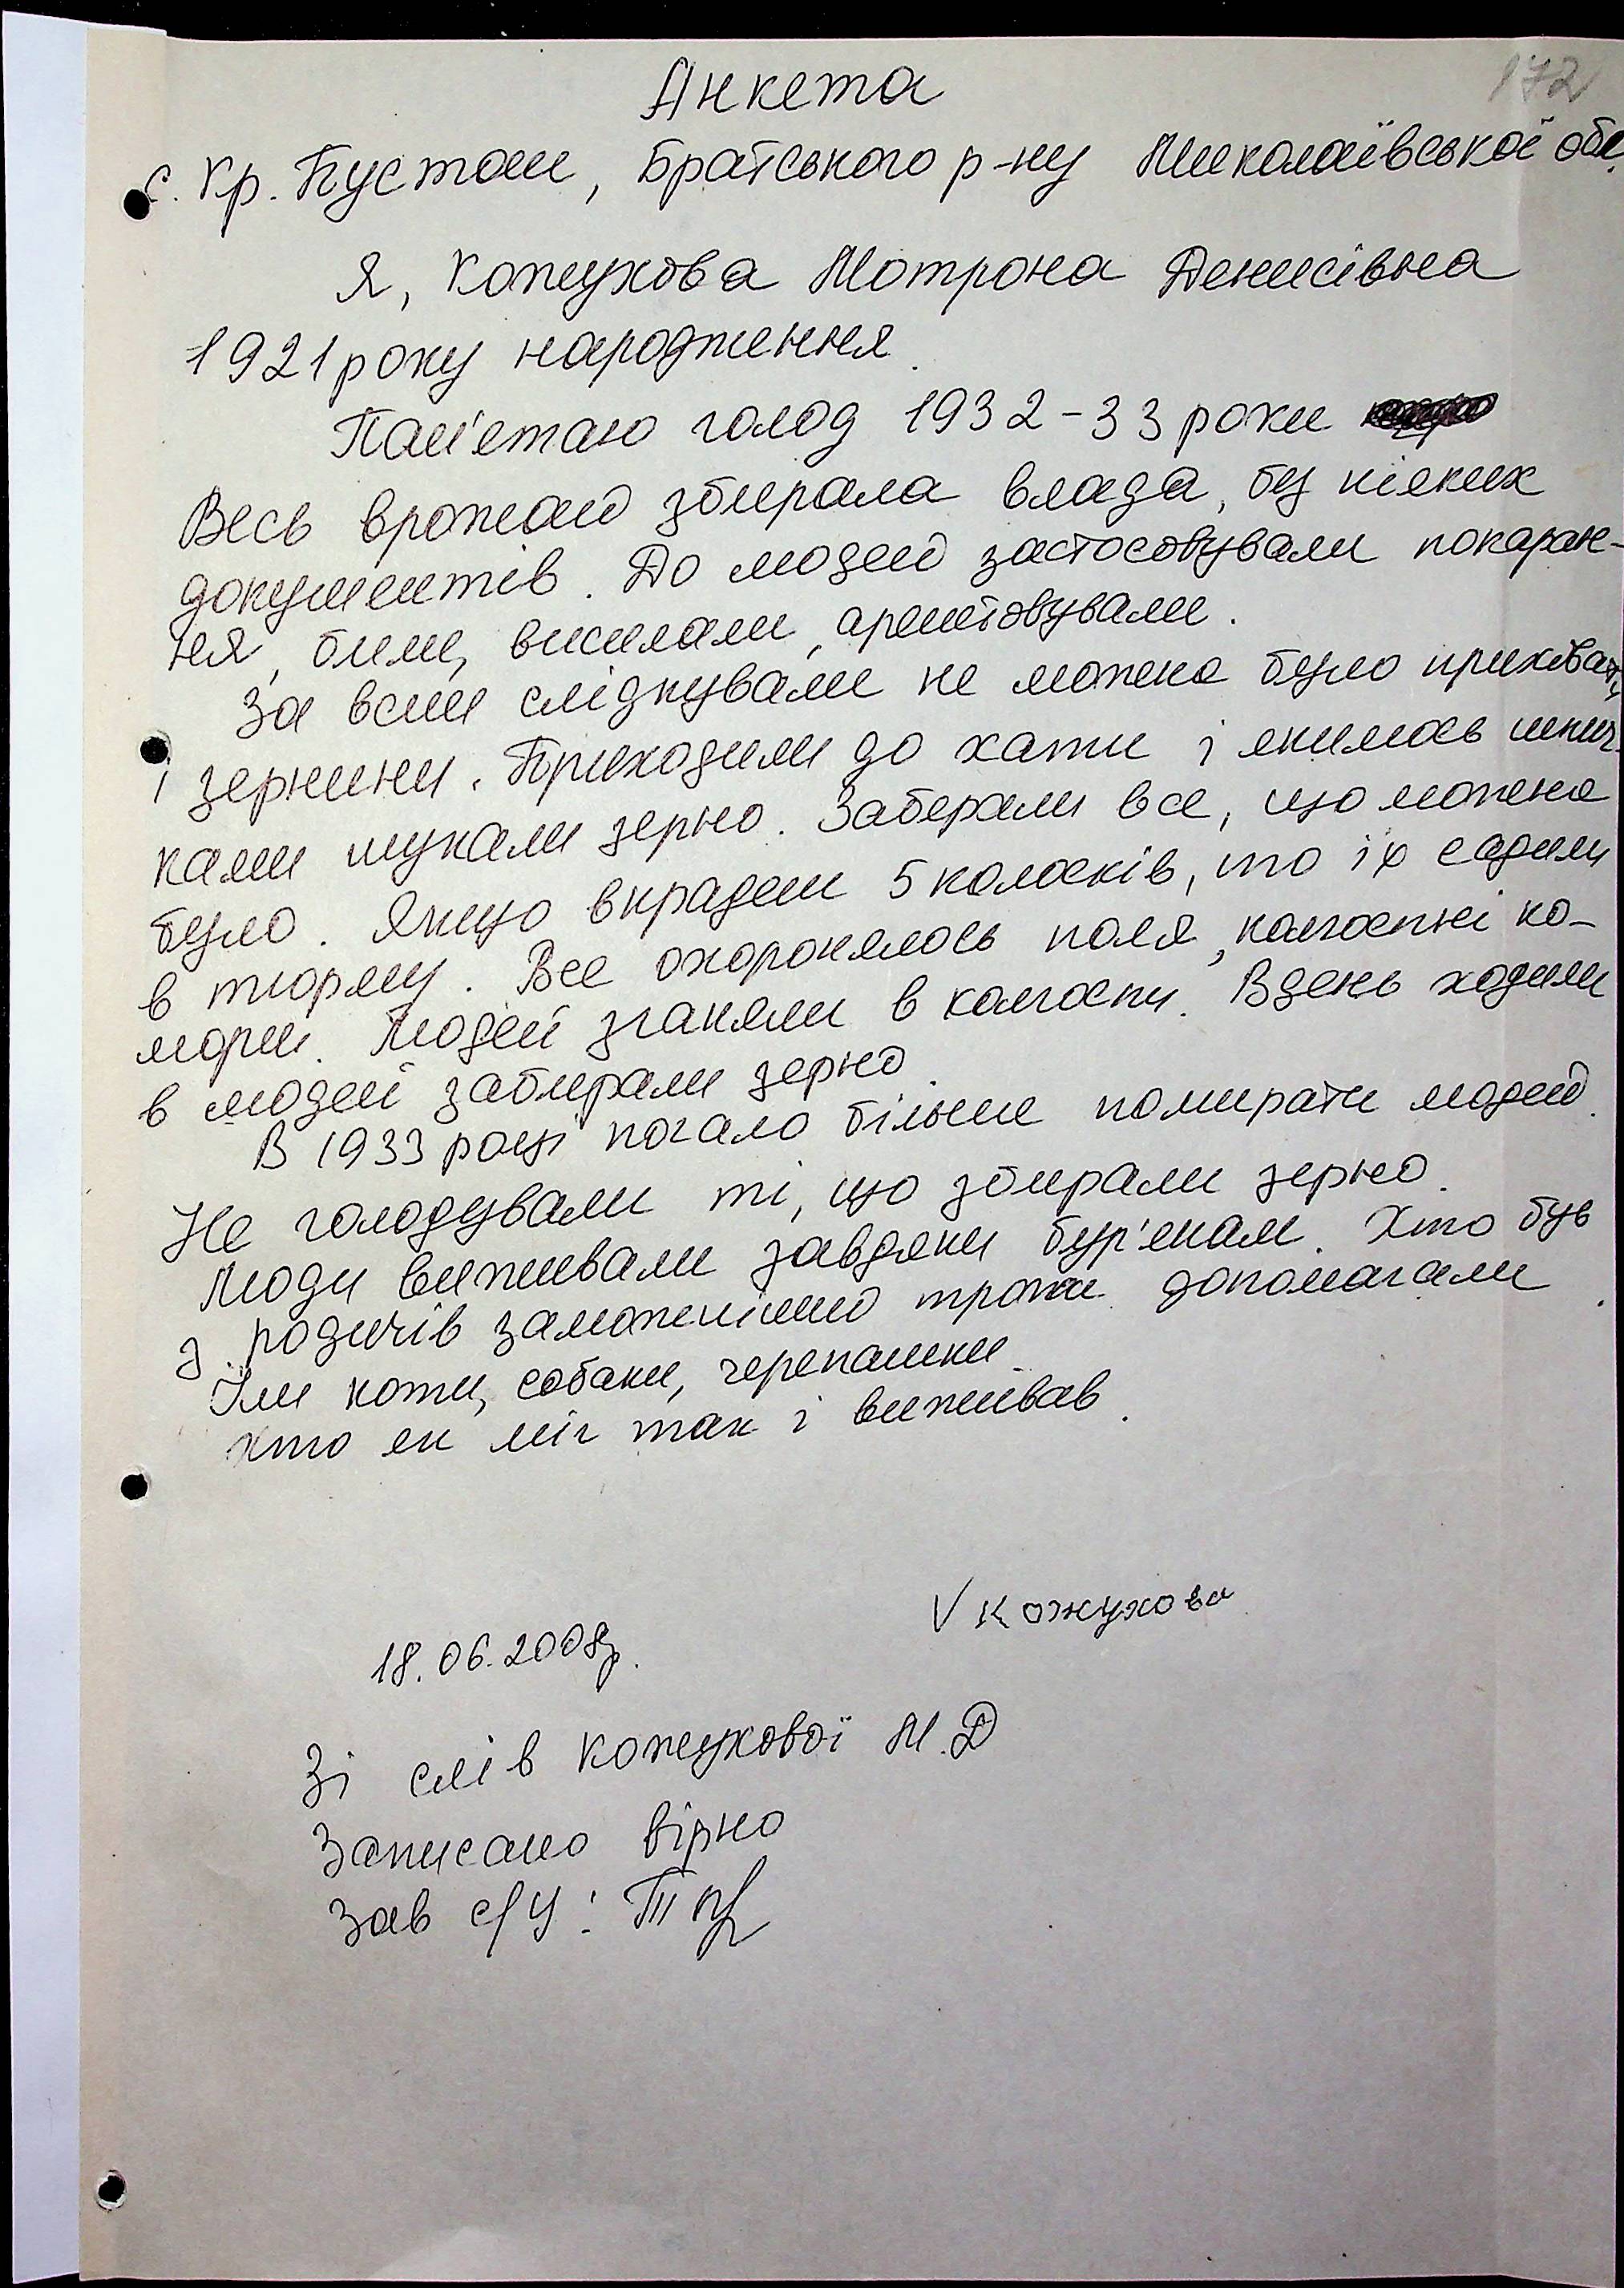 172
Анкета
с. Кр. Пустош, Братського р-ну Миколаївської обл.
Я, Кожухова Мотрона Денисівна
1921 року народження.
Пам'ятаю голод 1932-33 роки
Весь врожай збирала влада, без ніяких
документів. До людей застосовували покаран-
ня, били, висилали, арештовували.
За всім слідкували не можна було приховати
і зернини. Приходили до хати і якимось шпич-
ками шукали зерно. Заберали все, що можна
було. Якщо вкрадеш 5 колосків, то їх садили
в тюрму. Все охоронялось поля, колгоспні ко-
мори. Людей зганяли в колгоспи. Вдень ходили
в людей забирали зерно.
В 1933 році почало більше помирати людей.
Не голодували ті, що збирали зерно.
Люди виживали завдяки бур'янам. Хто був
з родичів заможніший трохи допомагали.
Їли коти, собаки, черепашки.
хто як міг так і виживав.
V Кожухова
18.06.2008р.
Зі слів Кожухової М.Д
Записано вірно
Зав с/у: